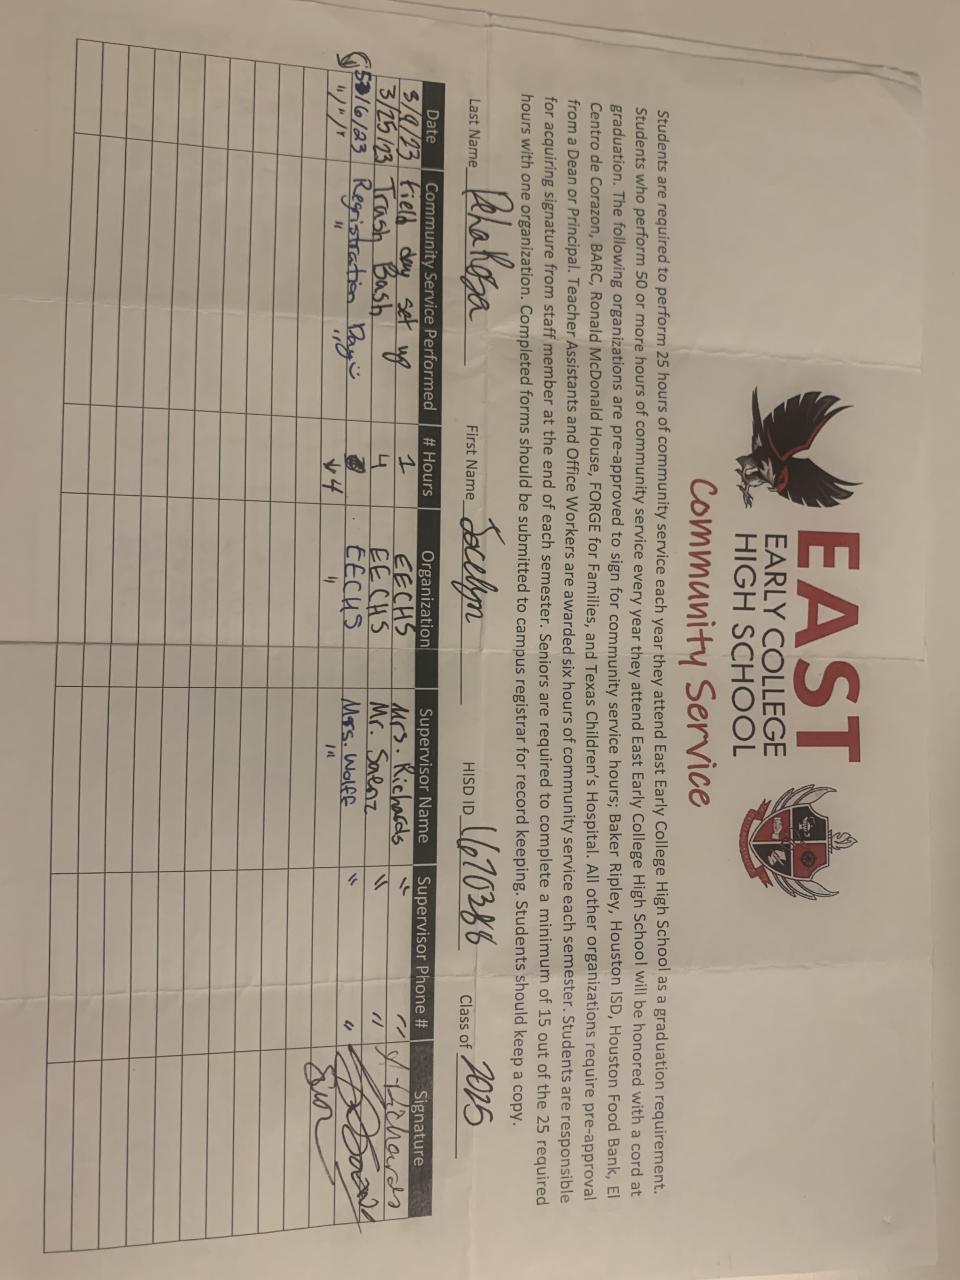 EAST
EARLY COLLEGE
HIGH SCHOOL
Community Service
Students are required to perform 25 hours of community service each year they attend East Early College High School as a graduation requirement.
Students who perform 50 or more hours of community service every year they attend East Early College High School will be honored with a cord at
graduation. The following organizations are pre-approved to sign for community service hours; Baker Ripley, Houston ISD, Houston Food Bank, El
Centro de Corazon, BARC, Ronald McDonald House, FORGE for Families, and Texas Children's Hospital. All other organizations require pre-approval
from a Dean or Principal. Teacher Assistants and Office Workers are awarded six hours of community service each semester. Students are responsible
for acquiring signature from staff member at the end of each semester. Seniors are required to complete a minimum of 15 out of the 25 required
hours with one organization. Completed forms should be submitted to campus registrar for record keeping. Students should keep a copy.
Last Name DelaRosa First Name Jocelyn HISD ID 1670388 Class of 2025
Date Community Service Performed # Hours Organization Supervisor Name Supervisor Phone # Signature
3/9/23 Field day set up 1 EECHS Mrs. Richards " " Y. Richards
3/25/23 Trash Bash 4 EECHS Mr. Saenz " "
5/6/23 Registration Day EECHS Mrs. Wolff " "
"/"/" " " 4 " "